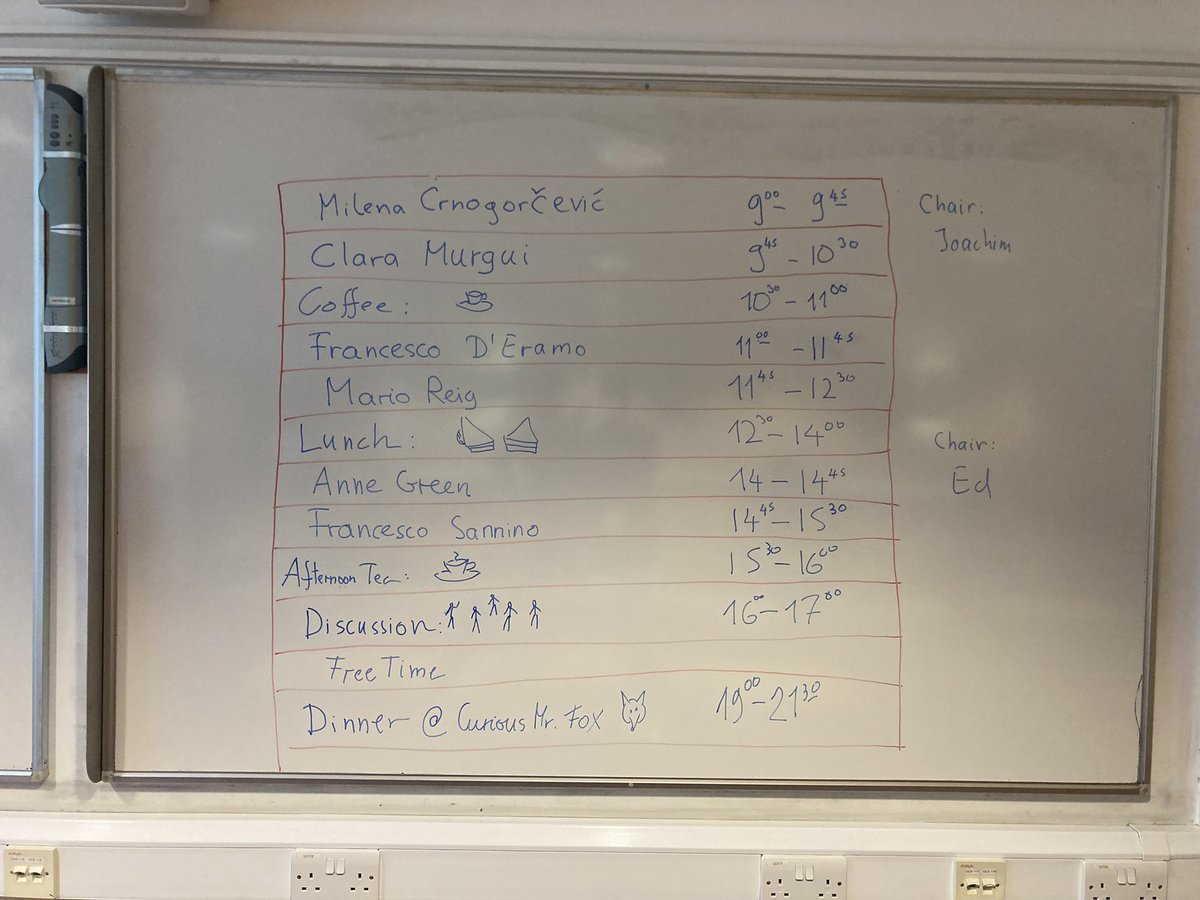 Milena Crnogorčević 9⁰⁰ - 9⁴⁵
Chair:
Joachim
Clara Murgui 9⁴⁵ - 10³⁰
Coffee: 10³⁰ - 11⁰⁰
Francesco D'Eramo 11⁰⁰ - 11⁴⁵
Mario Reig 11⁴⁵ - 12³⁰
Lunch: 12³⁰ - 14⁰⁰
Chair:
Ed
Anne Green 14 - 14⁴⁵
Francesco Sannino 14⁴⁵ - 15³⁰
Afternoon Tea: 15³⁰ - 16⁰⁰
Discussion: 16⁰⁰ - 17⁰⁰
Free Time
Dinner @ Curious Mr. Fox 19⁰⁰ - 21³⁰